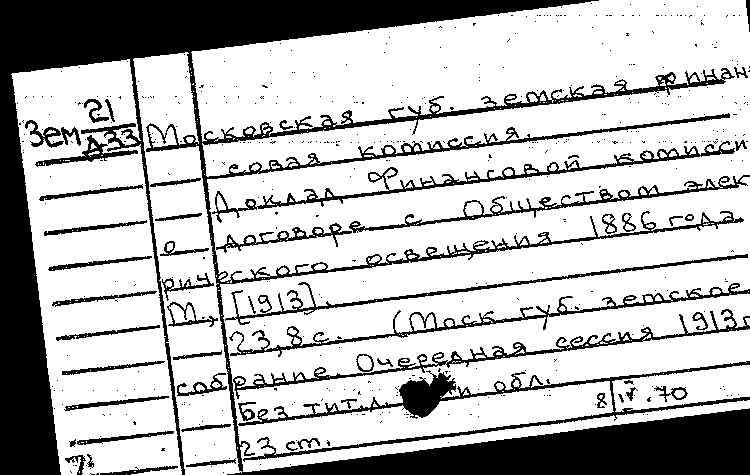 Зем 21
Д33
Московская губ. земская финан-
совая комиссия.
Доклад Финансовой комисси
о договоре с Обществом элек
рического освещения 1886 года.
М., [1913].
23,8 с. (Моск губ. земское
собрание. Очередная сессия 1913 г
без тит.л. и обл.
8/IV.70
23 cm.